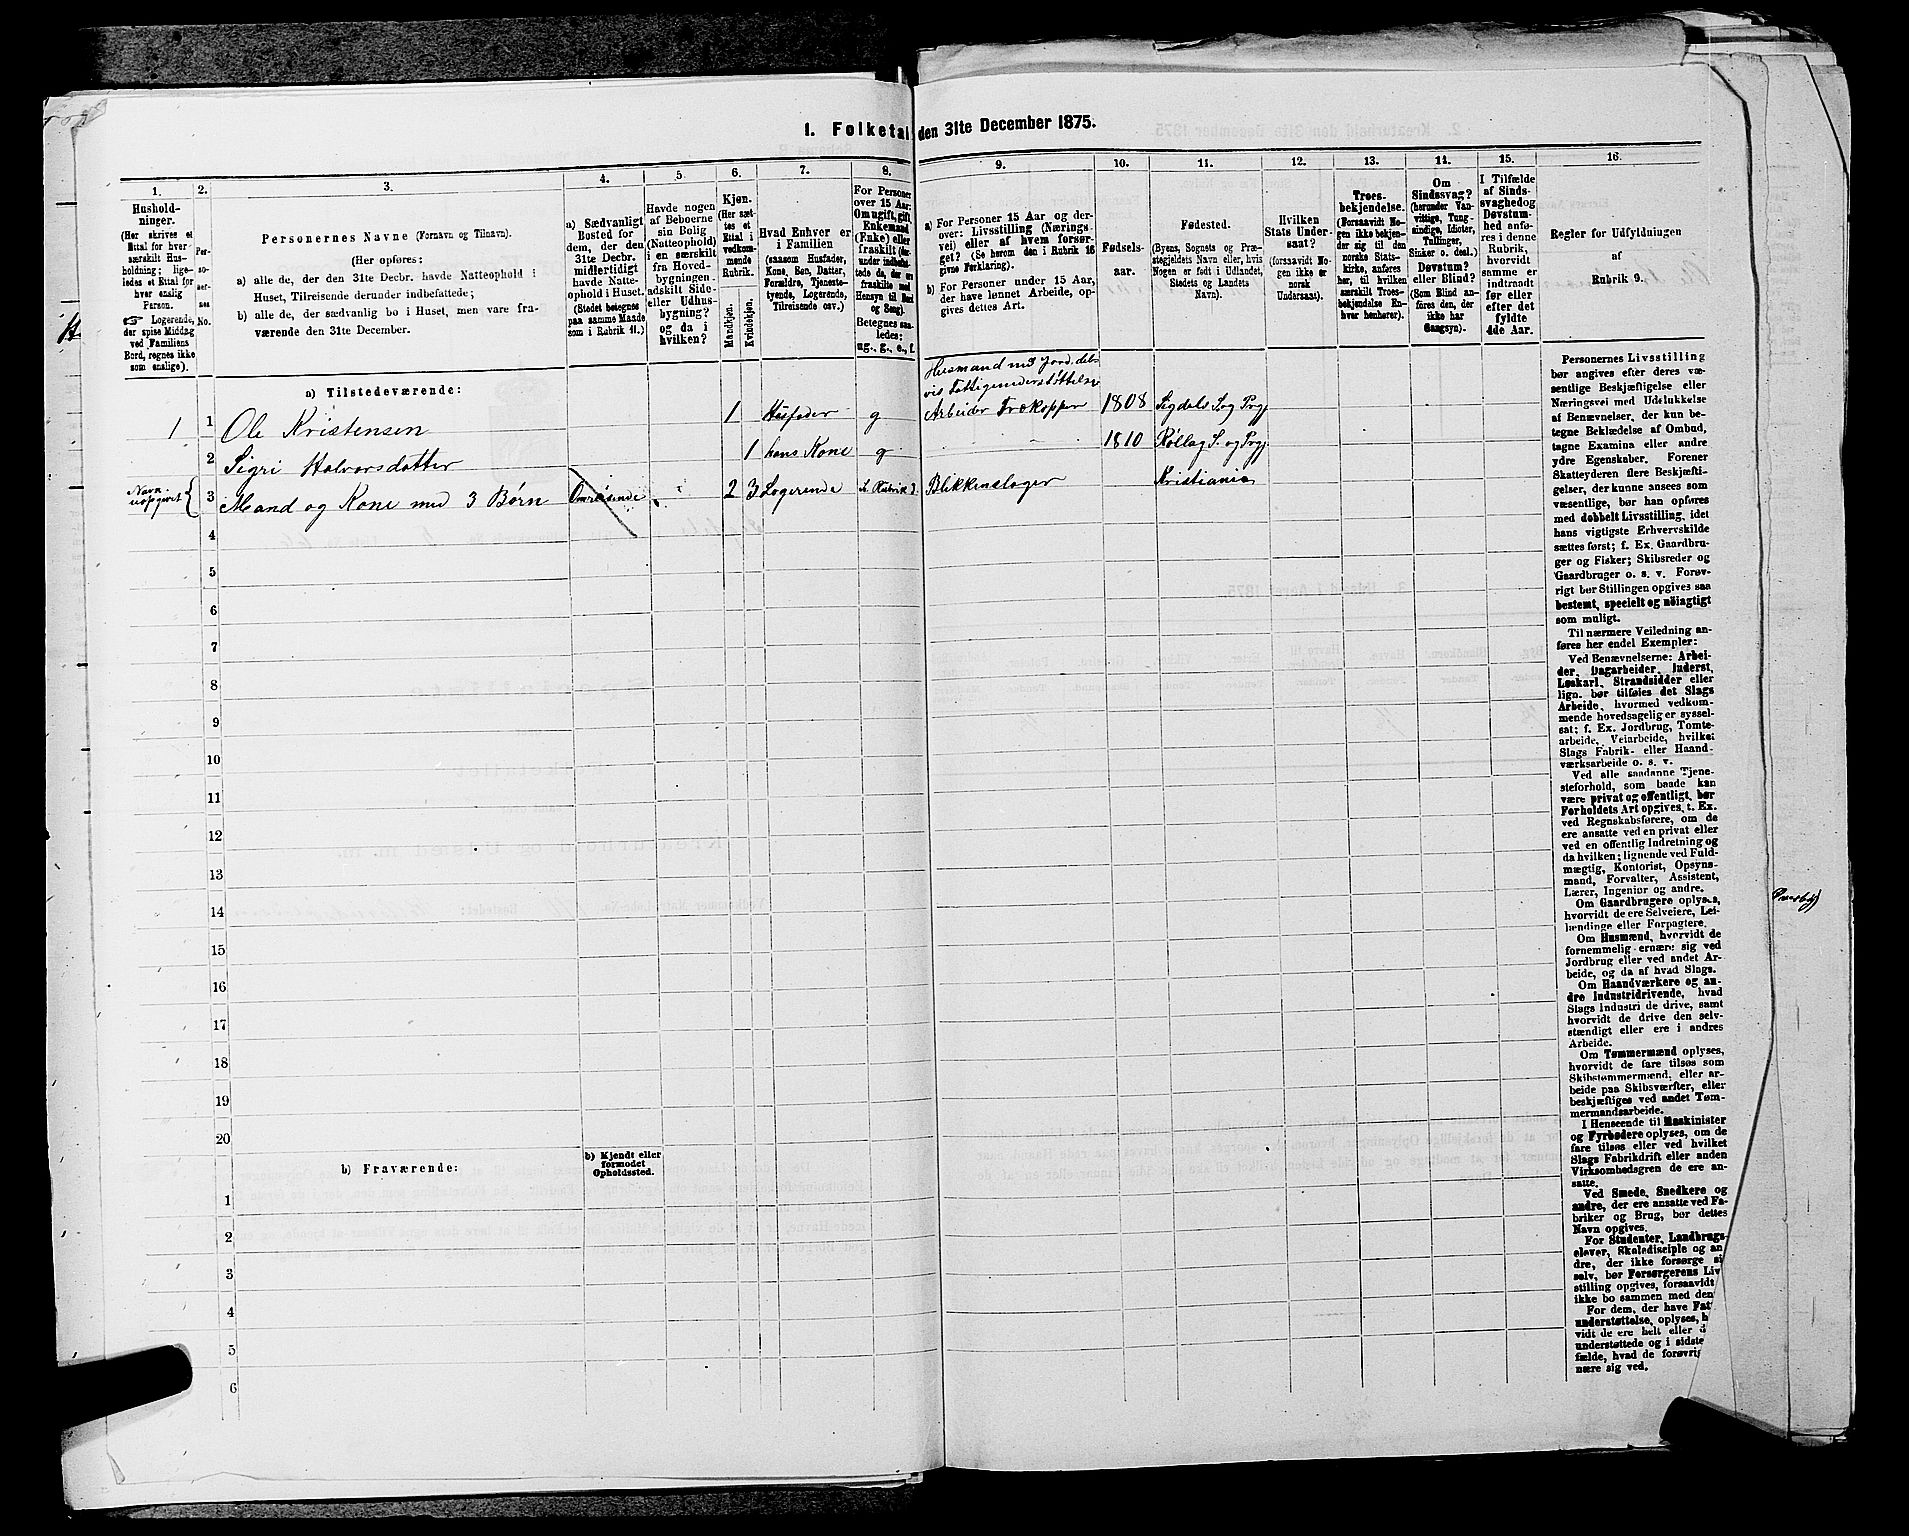 1. Folketal den 31te December 1875.
1. 2. 3. 4. 5. 6. 7. 8. 9. 10. 11. 12. 13. 14. 15. 16.
Hushold-
ninger.
(Her skrives et
Ettal for hver
særskilt Hus-
holdning; lige-
ledes et Ettal for
hver enslig
Person.
☞ Logerende,
der spise Middag
ved Familiens
Bord, regnes ikke
som enslige).
Per-
so-
ner-
nes
No.
Personernes Navne (Fornavn og Tilnavn).
(Her opføres:
a) alle de, der den 31te Decbr. havde Natteophold i
Huset, Tilreisende derunder indbefattede;
b) alle de, der sædvanlig bo i Huset, men vare fra-
værende den 31te December.
a) Sædvanligt
Bosted for
dem, der den
31te Decbr.
midlertidigt
havde Natte-
ophold i Huset.
(Stedet betegnes
paa samme Maade
som i Rubrik 11.)
Havde nogen
af Beboerne
sin Bolig
(Natteophold)
i en særskilt
fra Hoved-
bygningen
adskilt Side-
eller Udhus-
bygning?
og da i
hvilken?
Kjøn.
(Her sæt-
tes et
Ettal i
vedkom-
mende
Rubrik.
Mandkjøn.
Kvindekjøn.
Hvad Enhver er
i Familien
(saasom Husfader,
Kone, Søn, Datter,
Forældre, Tjeneste-
tyende, Logerende,
Tilreisende osv.)
For Personer
over 15 Aar:
Om ugift, gift,
Enkemand
(Enke) eller
fraskilt (der-
under indbefat-
tede de, der ere
fraskilte med
Hensyn til Bord
og Seng).
Betegnes saa-
ledes:
ug., g., e., f.
a) For Personer 15 Aar og der-
over: Livsstilling (Nærings-
vei) eller af hvem forsør-
get? (Se herom den i Rubrik 16
givne Forklaring).
b) For Personer under 15 Aar,
der have lønnet Arbeide, op-
gives dettes Art.
Fødsels-
aar.
Fødested.
(Byens, Sognets og Præ-
stegjeldets Navn eller, hvis
Nogen er født i Udlandet,
Stedets og Landets
Navn).
Hvilken
Stats Under-
saat?
(forsaavidt No-
gen ikke er
norsk
Undersaat).
Troes-
bekjendelse.
(Forsaavidt No-
gen ikke bekjen-
der sig til den
norske Stats-
kirke, anføres
her, til hvilken
særskilt Troes-
bekjendelse En-
hver henhører).
Om
Sindssvag?
(herunder Van-
vittige, Tung-
sindige, Idioter,
Tullinger,
Sinker o. desl.)
Døvstum?
eller Blind?
(Som Blind an-
føres den, der
ikke har
Gangsyn).
I Tilfælde
af Sinds-
svaghed og
Døvstum-
hed anfø-
res i denne
Rubrik,
hvorvidt
samme er
indtraadt
før eller
efter det
fyldte
4de Aar.
Regler for Udfyldningen
af
Rubrik 9.
a) Tilstedeværende:
Husmand med Jord. del-
vis Fattigenderstøttelse
1 1 Ole Kristensen 1 Husfader g Arbeider Trækopper 1808 Sigdals S og Prgj
2 Sigri Halvorsdatter 1 hans Kone g 1810 Rollag S. og Prgj
Navn
uopgivet { 3 Mand og Kone med 3 Børn Omreisende 2 3 Logerende Blikkenslager Kristiania
4
5
6
7
8
9
10
11
12
13
14
15
16
17
18
19
20
b) Fraværende:
b) Kjendt eller
formodet
Opholdssted.
1
2
3
4
5
6
Personernes Livsstilling
bør angives efter deres væ-
sentlige Beskjæftigelse eller
Næringsvei med Udelukkelse
af Benævnelser, der kun be-
tegne Beklædelse af Ombud,
tagne Examina eller andre
ydre Egenskaber. Forener
Skatteyderen flere Beskjæfti-
gelser, der kunne ansees som
væsentlige, bør han opføres
med dobbelt Livsstilling, idet
hans vigtigste Erhvervskilde
sættes først; f. Ex. Gaardbru-
ger og Fisker; Skibsreder og
Gaardbruger o. s. v. Forøv-
rigt bør Stillingen opgives saa
bestemt, specielt og nøiagtigt
som muligt.
Til nærmere Veiledning an-
føres her endel Exempler:
Ved Benævnelserne: Arbei-
der, Dagarbeider, Inderst,
Løskarl, Strandsidder eller
lign. bør tilføies det Slags
Arbeide, hvormed vedkom-
mende hovedsagelig er syssel-
sat; f. Ex. Jordbrug, Tomte-
arbeide, Veiarbeide, hvilket
Slags Fabrik- eller Haand-
værksarbeide o. s. v.
Ved alle saadanne Tjene-
steforhold, som baade kan
være privat og offentligt, bør
Forholdets Art opgives, t. Ex.
ved Regnskabsførere, om de
ere ansatte ved en privat eller
ved en offentlig Indretning og
da hvilken; lignende ved Fuld-
mægtig, Kontorist, Opsyns-
mand, Forvalter, Assistent,
Lærer, Ingeniør og andre.
Om Gaardbrugere oplyses,
hvorvidt de ere Selveiere, Lei-
lændinge eller Forpagtere.
Om Husmænd, hvorvidt de
fornemmelig ernære sig ved
Jordbrug eller ved andet Ar-
beide, og da af hvad Slags.
Om Haandværkere og an-
dre Industridrivende, hvad
Slags Industri de drive, samt
hvorvidt de drive den selv-
stændigt eller ere i andres
Arbeide.
Om Tømmermænd oplyses,
hvorvidt de fare tilsøs som
Skibstømmermænd, eller ar-
beide paa Skibsværfter, eller
beskjæftiges ved andet Tøm-
mermandsarbeide.
I Henseende til Maskinister
og Fyrbødere oplyses, om de
fare tilsøs eller ved hvilket
Slags Fabrikdrift eller anden
Virksomhedsgren de ere an-
satte.
Ved Smede, Snedkere og
andre, der ere ansatte ved Fa-
briker og Brug, bør dettes
Navn opgives.
For Studenter, Landbrugs-
elever, Skoledisciple og an-
dre, der ikke forsørge si
selv, bør Forsørgerens Liv
stilling opgives, forsaavidt
ikke bo sammen med den
For dem, der have Fat
understøttelse, oplyses, h
vidt de ere helt eller d
understøttede og i sidste
fælde, hvad de forøvrig
nære sig ved.